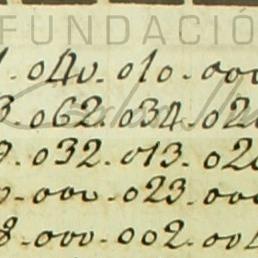 FUNDACIÓ
040. 010. 000
3. 062. 034. 02
9. 032. 013. 02
000. 023. 000
8. 000. 002. 004